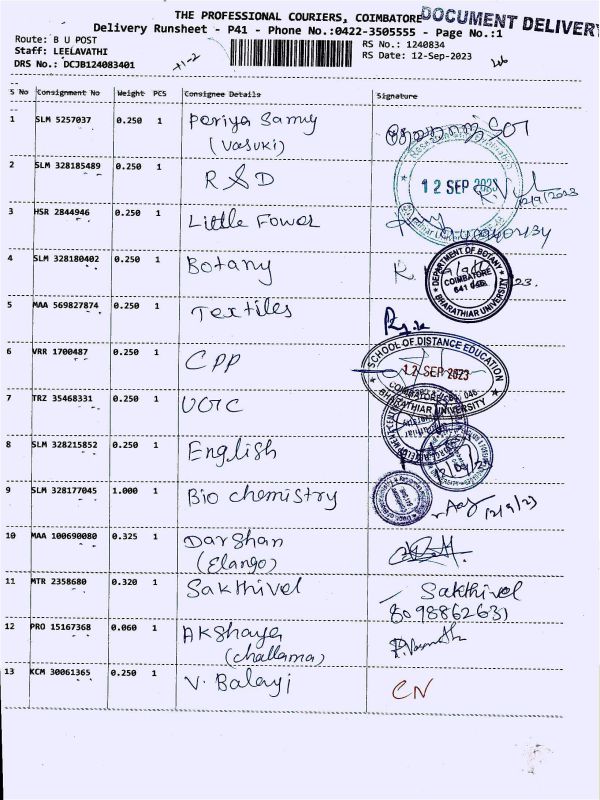 THE PROFESSIONAL COURIERS, COIMBATORE
DOCUMENT DELIVERY
Delivery Runsheet - P41 - Phone No.:0422-3505555 - Page No.:1
Route: B U POST
RS No.: 1240834
Staff: LEELAVATHI
RS Date: 12-Sep-2023
DRS No.: DCJB124083401
S No Consignment No Weight PCS Consignee Details Signature
1 SLM 5257037 0.250 1 Periya Samy
(Vasuki)
2 SLM 328185489 0.250 1 R & D
12 SEP 2023
12/9/2023
3 HSR 2844946 0.250 1 Little Fower
4 SLM 328180402 0.250 1 Botany
DEPARTMENT OF BOTANY
COIMBATORE
641 046
BHARATHIAR UNIVERSITY
5 MAA 569827874 0.250 1 Textiles
6 VRR 1700487 0.250 1 CPP
SCHOOL OF DISTANCE EDUCATION
12 SEP 2023
COIMBATORE - 641 046
BHARATHIAR UNIVERSITY
7 TRZ 35468331 0.250 1 UGC
8 SLM 328215852 0.250 1 English
9 SLM 328177045 1.000 1 Bio chemistry
12/9/23
10 MAA 100690080 0.325 1 Darshan
(Elango)
11 MTR 2358680 0.320 1 Sakthivel
Sakthivel
8098862631
12 PRO 15167368 0.060 1 Akshaya
(challama)
13 KCM 30061365 0.250 1 V. Balayi
CN